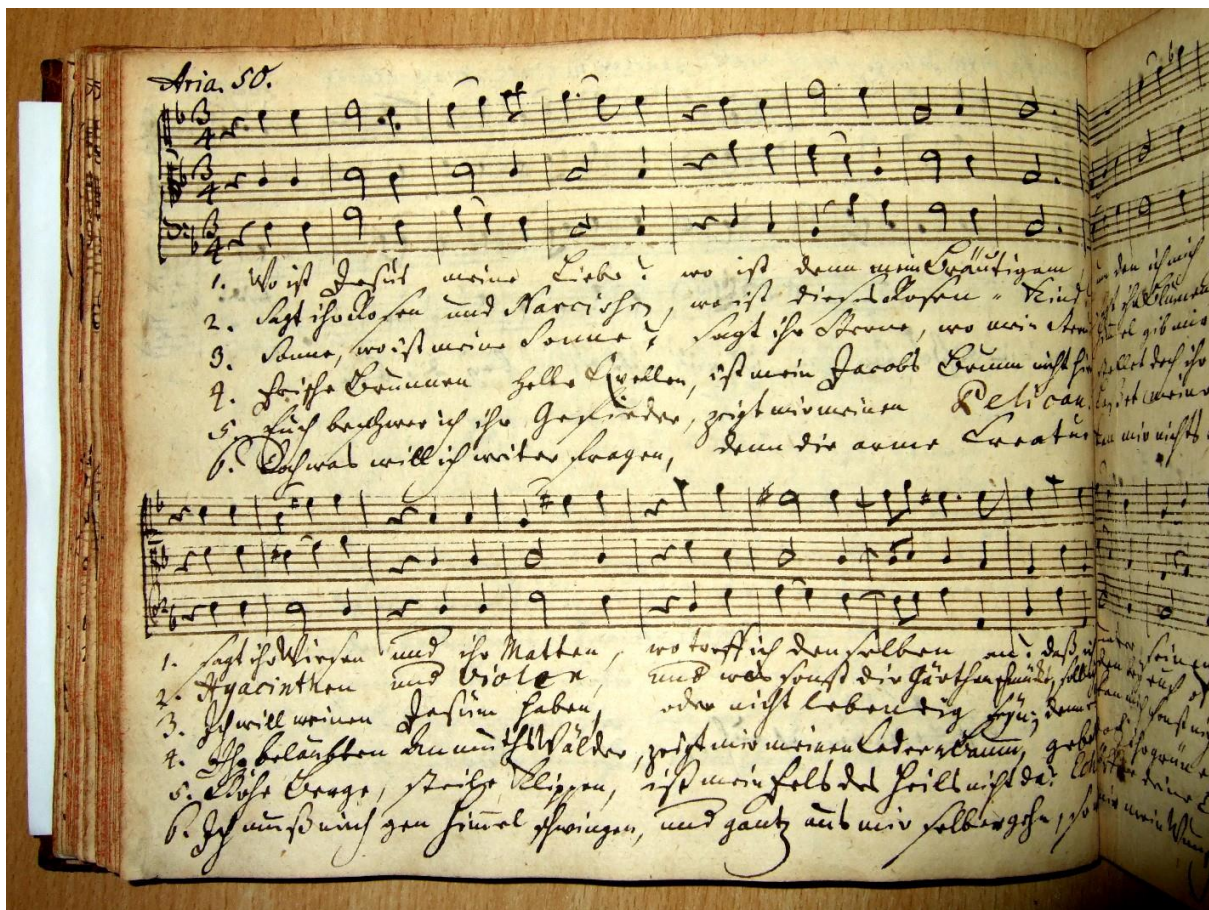 Aria. 50.
3 4
3 4
3 4
1. Wo ist Jesus meine Liebe? wo ist denn mein Bräutigam, den ich mich
2. Sagt ihr Rosen und Narcissen, wo ist dieses Rosen-Kind ihr Blumen
3. Sonne, wo ist meine Sonne? sagt ihr Sterne, wo mein Stern gib mir
4. Frische Brunnen helle Quellen, ist mein Jacobs Brunn nicht hier doch ihr
5. Euch beschwer ich ihr Gefieder, zeigt mir meinen Pelican,
6. Doch was will ich weiter fragen, denn die arme Creatur mir nichts
1. sagt ihr Wiesen und ihr Matten, wo treff ich denselben an? daß
2. Hyacinthen und Violen, und was sonst die Gärthen
3. Ich will meinen Jesum haben, oder nicht lebendig seyn; denn
4. Ihr belaubten Anmuths Wälder, zeigt mir meinen Cedern Baum,
5. Hohe Berge, steile Klippen, ist mein Fels des Heils nicht da?
6. Ich muß mich gen Himmel schwingen, und gantz aus mir selber gehn,